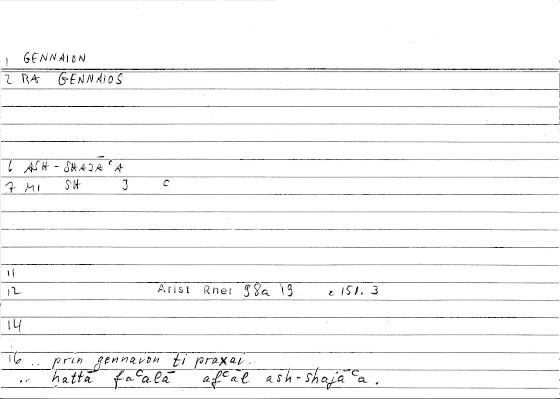 1 GENNAION
2 RA GENNAIOS
6 ASH-SHAJĀʿA
7 MI SH J ʿ
11
12 Arist Rhet 98a 19 = 151.3
14
16 .. prin gennaion ti praxai.
.. hattā faʿalā afʿāl ash-shajāʿa.